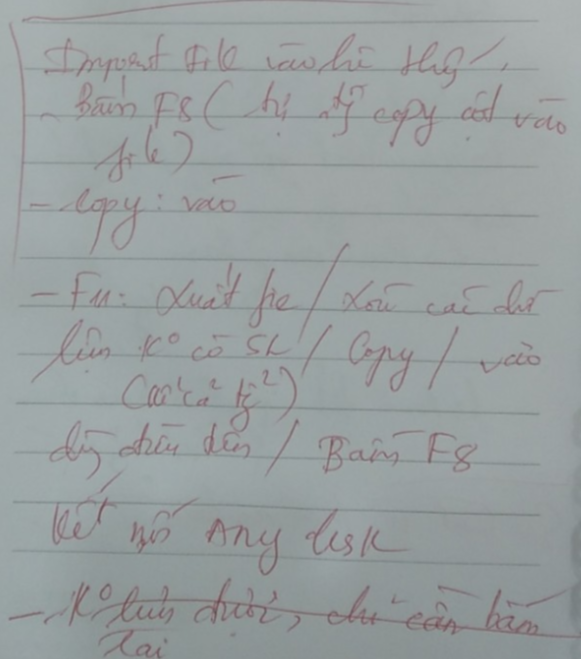 Import file vào hệ thống.
- Bấm F8 ( tự copy cột vào
file)
- Copy: vào
- F11: Xuất file / Xoá cái dữ
liệu K° có SL / Copy / vào
dòng đầu tiên / Bấm F8
Kết nối Any desk
- K° dưới, chỉ cần bấm
Tại